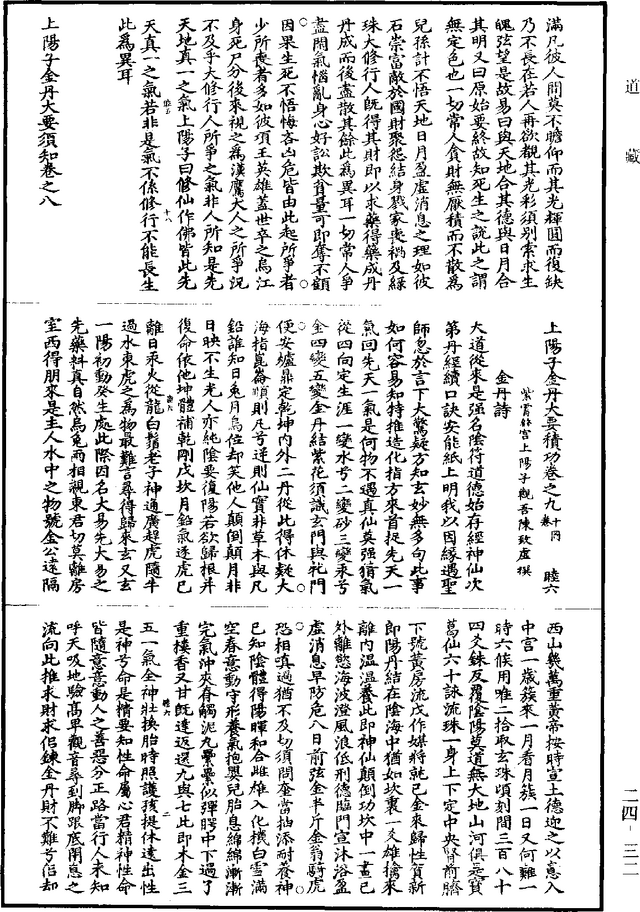 道藏
滿凡彼人間莫不瞻仰而其光輝圓而復缺
乃不長在若人再欲觀其光彩須別索求生
魄弦望是故易曰與天地合其德與日月合
其明又曰原始要終故知死生之說此之謂
無定色也一切常人貪財無厭積而不散為
兒孫計不悟天地日月盈虛消息之理如彼
石崇富敵於國財聚怨結身戮家喪禍及綠
珠大修行人既得其財即以求藥得藥成丹
丹成而後盡散其餘此為異耳一切常人爭
盡閑氣惱亂身心好訟欺貧量可即奪不顧
因果生死不悟悔吝凶危皆由此起所爭者
少所喪者多如彼項王英雄蓋世卒之烏江
身死尸分後來視之為漢鷹犬人之所爭況
不及乎大修行人所爭之氣非人所知是先
天地真一之氣上陽子曰修仙作佛皆此先
天真一之氣若非是氣不係修行不能長生
此為異耳
上陽子金丹大要須知卷之八
上陽子金丹大要積功卷之九
睦六
紫霄絳宮上陽子觀吾陳致虛撰
金丹詩
大道從來是强名陰符道德始存經神仙次
第丹經續口訣安能紙上明我以因緣遇聖
師忽於言下大驚疑方知玄妙無多句此事
如何容易知特推造化指方來首捉先天一
氣回先天一氣是何物不遇真仙莫强猜氣
從四向定生涯一變水兮二變砂三變汞兮
金四變五變金丹結紫花須識玄門與牝門
便安爐鼎定乾坤內外二丹從此得休疑大
海指崑崙順則凡兮逆則仙實非草木與凡
鉛誰知日兔月烏位却笑他人顛倒顛月非
日映不生光人亦純陰要復陽若欲歸根并
復命依他坤體補乾剛戌坎月鉛氣逐虎巳
離日汞火從龍白鬚老子神通廣趕虎隨牛
過水東虎之為物最難言尋得歸來玄又玄
一陽初動癸生處此際因名大易先大易之
先藥料真自然烏兔兩相親東君切莫離房
室西得朋來是主人水中之物號金公遠隔
西山幾萬重黃帝按時宣土德迎之以意入
中宮一歲蔟來一月看月蔟一日又何難一
時六候用唯二拾取玄珠頃刻間三百八十
四爻銖反覆陰陽莫道無大地山河俱是寶
葛仙六十詠流珠一身上下定中央腎前臍
下號黃房流戊作媒將就己金來歸性賀新
即陽丹結在陰海中猶如坎裏一爻雄擒來
離內溫溫養此即神仙顛倒功坎中一畫已
外離慾海波澄風浪低刑德臨門宣沐浴盈
虛消息早防危八日前弦金半斤金翁騎虎
恐相嗔過猶不及切須問奎當抽添耐養神
已知陰體得陽暉和合雌雄入化機白雪滿
空春意動守形養氣抱嬰兒胎息綿綿漸漸
完氣沖夾脊觸泥丸纍纍似彈腭中下過了
重樓香又甘既達返還九與七此即木金三
五一氣全神壯換胎時照護孩提休遠出性
是神兮命是精要知性命屬心君精神性命
皆隨意意動人之善惡分正路當行人未知
呼天吸地驗高卑觀音尋到脚跟底開悉之
流向此推求財求侶鍊金丹財不難兮侶却
二四-三二